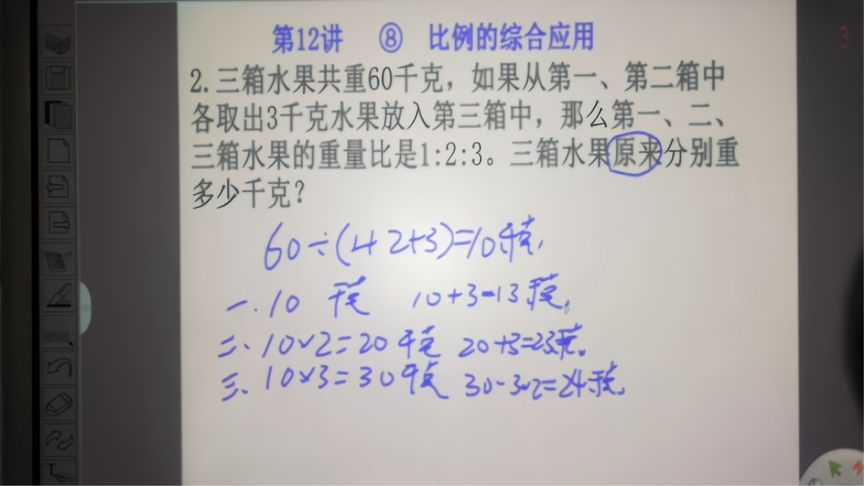 第12讲 ⑧ 比例的综合应用
2.三箱水果共重60千克，如果从第一、第二箱中
各取出3千克水果放入第三箱中，那么第一、二、
三箱水果的重量比是1:2:3。三箱水果原来分别重
多少千克？
60÷(1+2+3)=10千克。
一.10 千克 10+3=13千克。
二、10×2=20千克 20+3=23千克。
三、10×3=30千克 30-3×2=24千克。
3
T